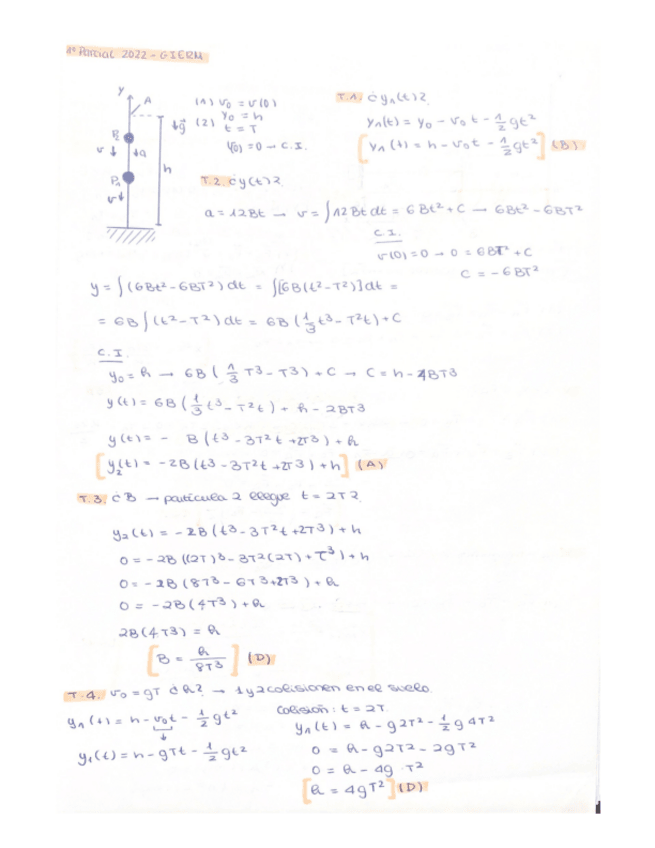 1º Parcial 2022 - GIERM
y
A
(1) v₀ = v(0)
(2) y₀ = h
t = T
v(0) = 0 → C.I.
g
P₂
v
a
h
P₁
v
T.1. ¿y₁(t)?
y₁(t) = y₀ - v₀t - 1/2 gt²
[y₁(t) = h - v₀t - 1/2 gt²] (B)
T.2. ¿y(t)?
a = 12Bt → v = ∫12Bt dt = 6Bt² + C → 6Bt² - 6BT²
C.I.
v(0) = 0 → 0 = 6BT² + C
C = -6BT²
y = ∫(6Bt² - 6BT²)dt = ∫[6B(t² - T²)]dt =
= 6B∫(t² - T²)dt = 6B(1/3 t³ - T²t) + C
C.I.
y₀ = h → 6B(1/3 T³ - T³) + C → C = h - 4BT³
y(t) = 6B(1/3 t³ - T²t) + h - 2BT³
y(t) = - B(t³ - 3T²t + 2T³) + h
[y₂(t) = -2B(t³ - 3T²t + 2T³) + h] (A)
T.3. ¿B → partícula 2 llegue t = 2T?
y₂(t) = -2B(t³ - 3T²t + 2T³) + h
0 = -2B((2T)³ - 3T²(2T) + T³) + h
0 = -2B(8T³ - 6T³ + 2T³) + h
0 = -2B(4T³) + h
2B(4T³) = h
[B = h/8T³] (D)
T.4. v₀ = gT ¿h? → 1 y 2 colisionen en el suelo.
y₁(t) = h - v₀t - 1/2 gt²
y₁(t) = h - gTt - 1/2 gt²
Colisión: t = 2T
y₁(t) = h - g2T² - 1/2 g4T²
0 = h - g2T² - 2gT²
0 = h - 4g T²
[h = 4gT²] (D)